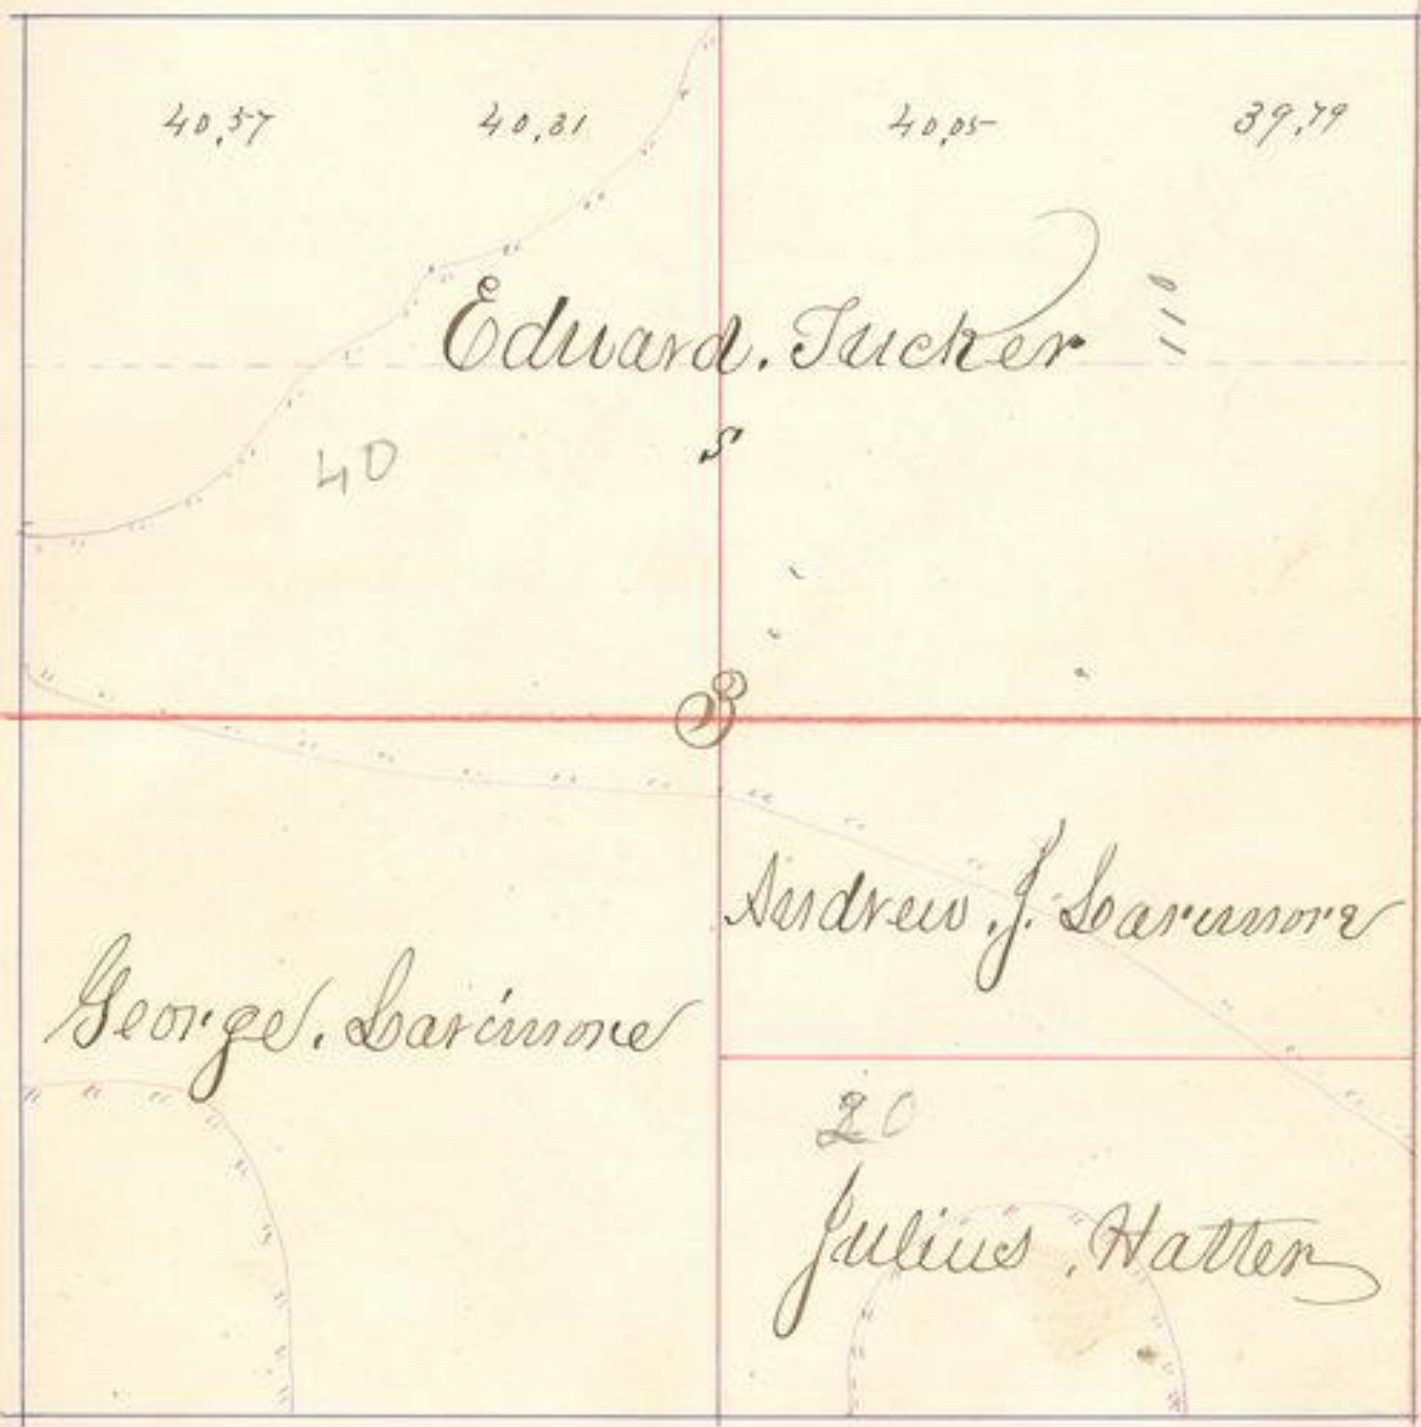 40,57 40,31 40,05 39,79
Edward. Tucker
40
S
3
Andrew. J. Larimore
George. Larimore
20
Julius. Hatter